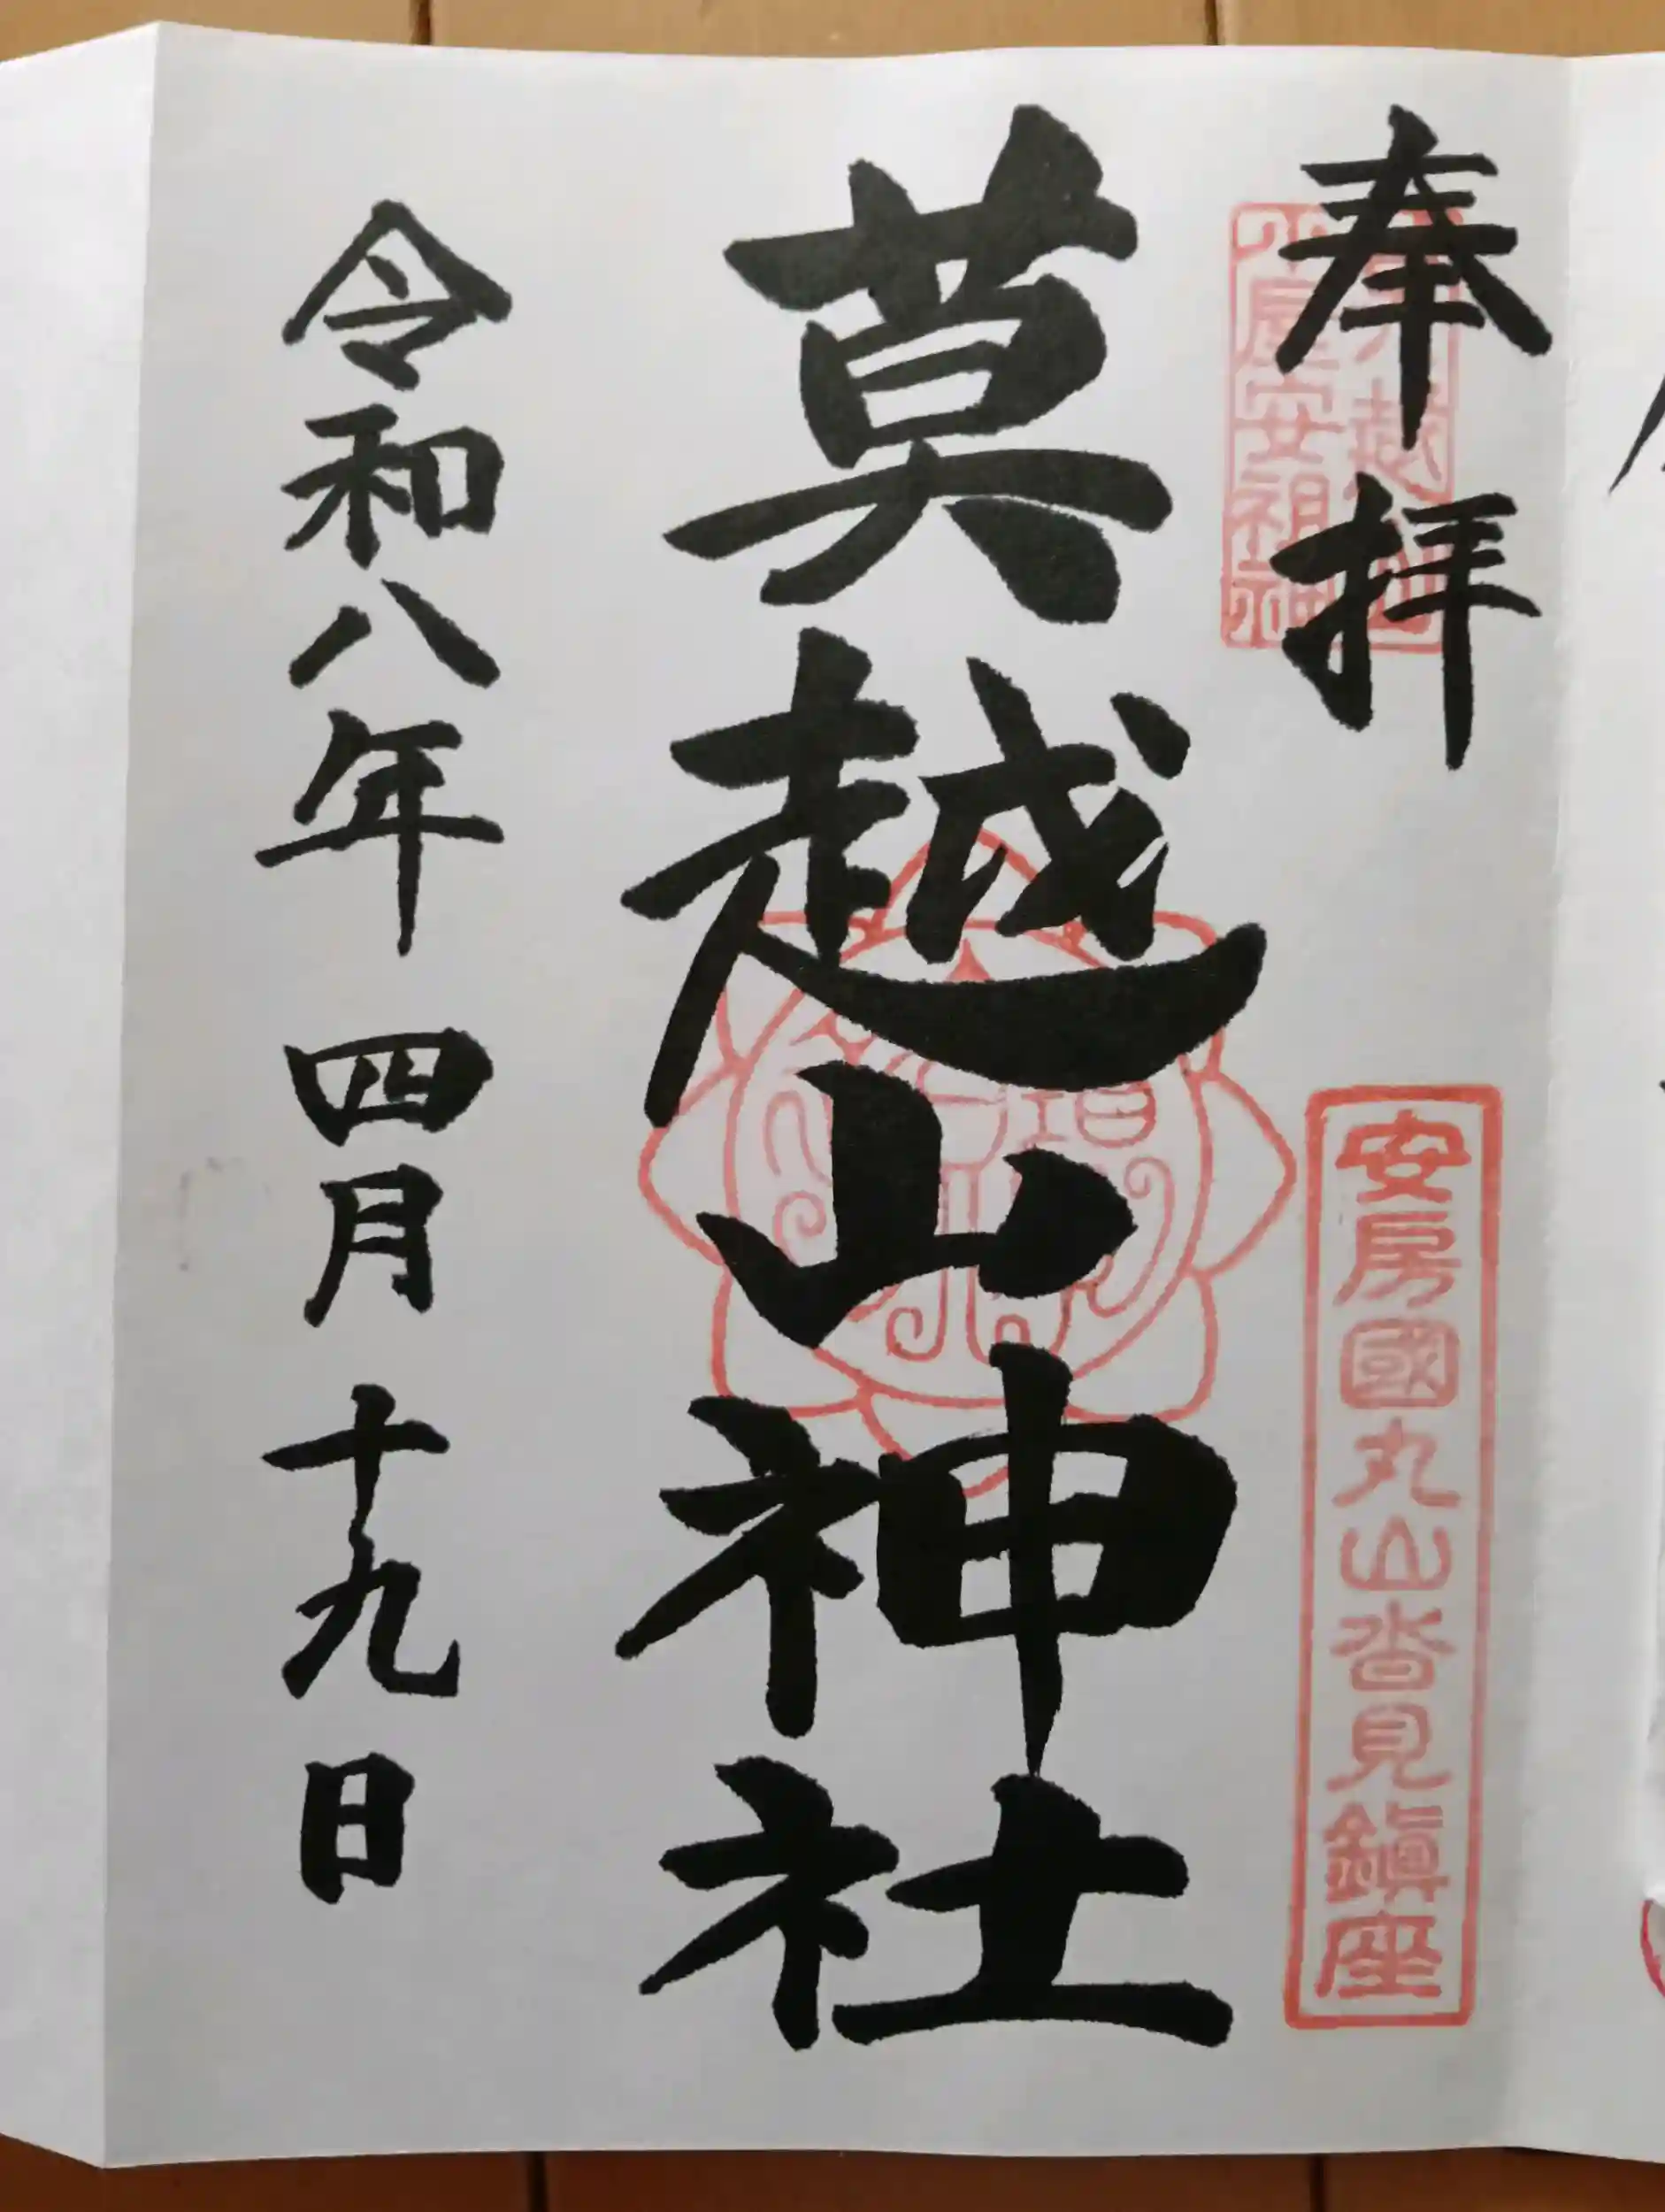 奉拝
安房國丸山沓見鎮座
莫越山神社
令和八年 四月 十九日